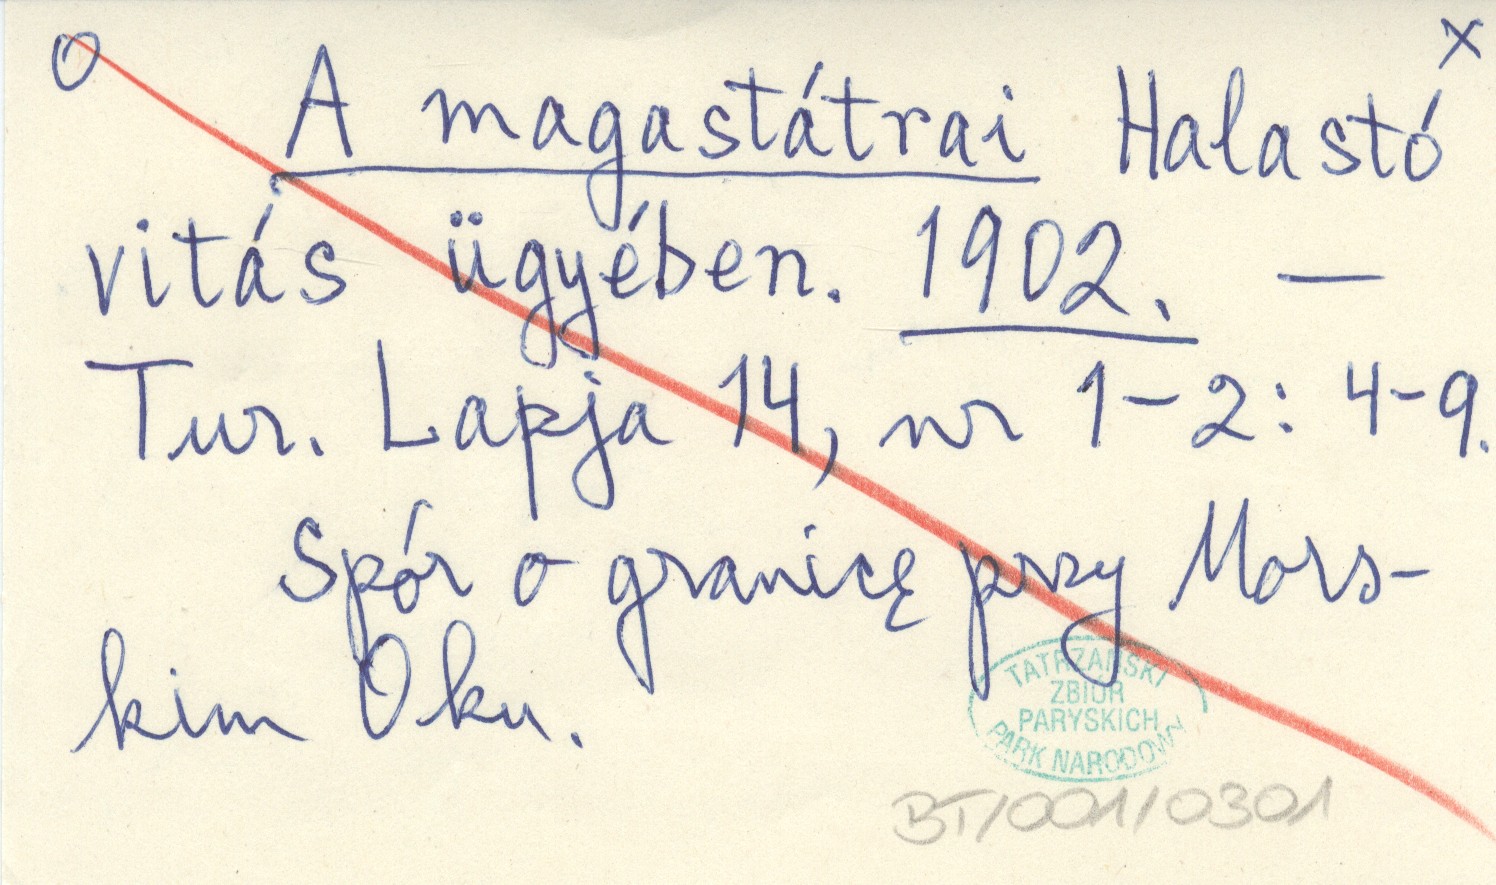 O X
A magastátrai Halastó
vitás ügyében. 1902. —
Tur. Lapja 14, nr 1-2: 4-9.
Spór o granicę przy Mors-
kim Oku.
TATRZAŃSKI
ZBIÓR
PARYSKICH
PARK NARODOWY
BT/001/0301